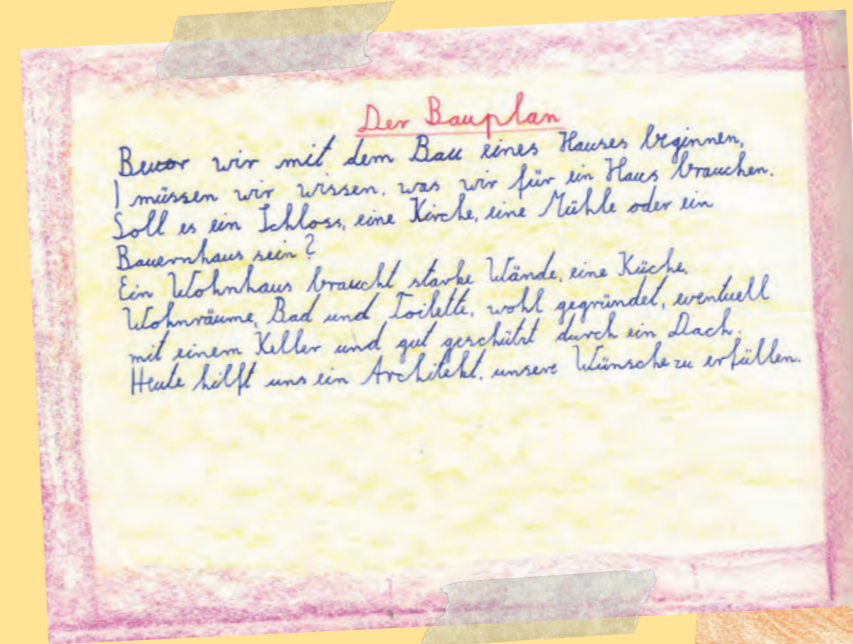 Der Bauplan
Bevor wir mit dem Bau eines Hauses beginnen,
müssen wir wissen, was wir für ein Haus brauchen.
Soll es ein Schloss, eine Kirche, eine Mühle oder ein
Bauernhaus sein?
Ein Wohnhaus braucht starke Wände, eine Küche,
Wohnräume, Bad und Toilette, wohl gegründet, eventuell
mit einem Keller und gut geschützt durch ein Dach.
Heute hilft uns ein Architekt, unsere Wünsche zu erfüllen.